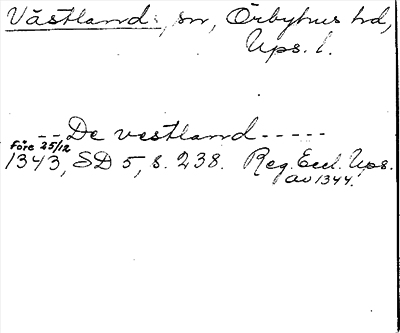 Västland, sn, Örbyhus hd,
Ups. l.
-- De vestland -----
före 25/12
1343, SD 5, s. 238. Reg. Eccl. Ups.
av 1344.